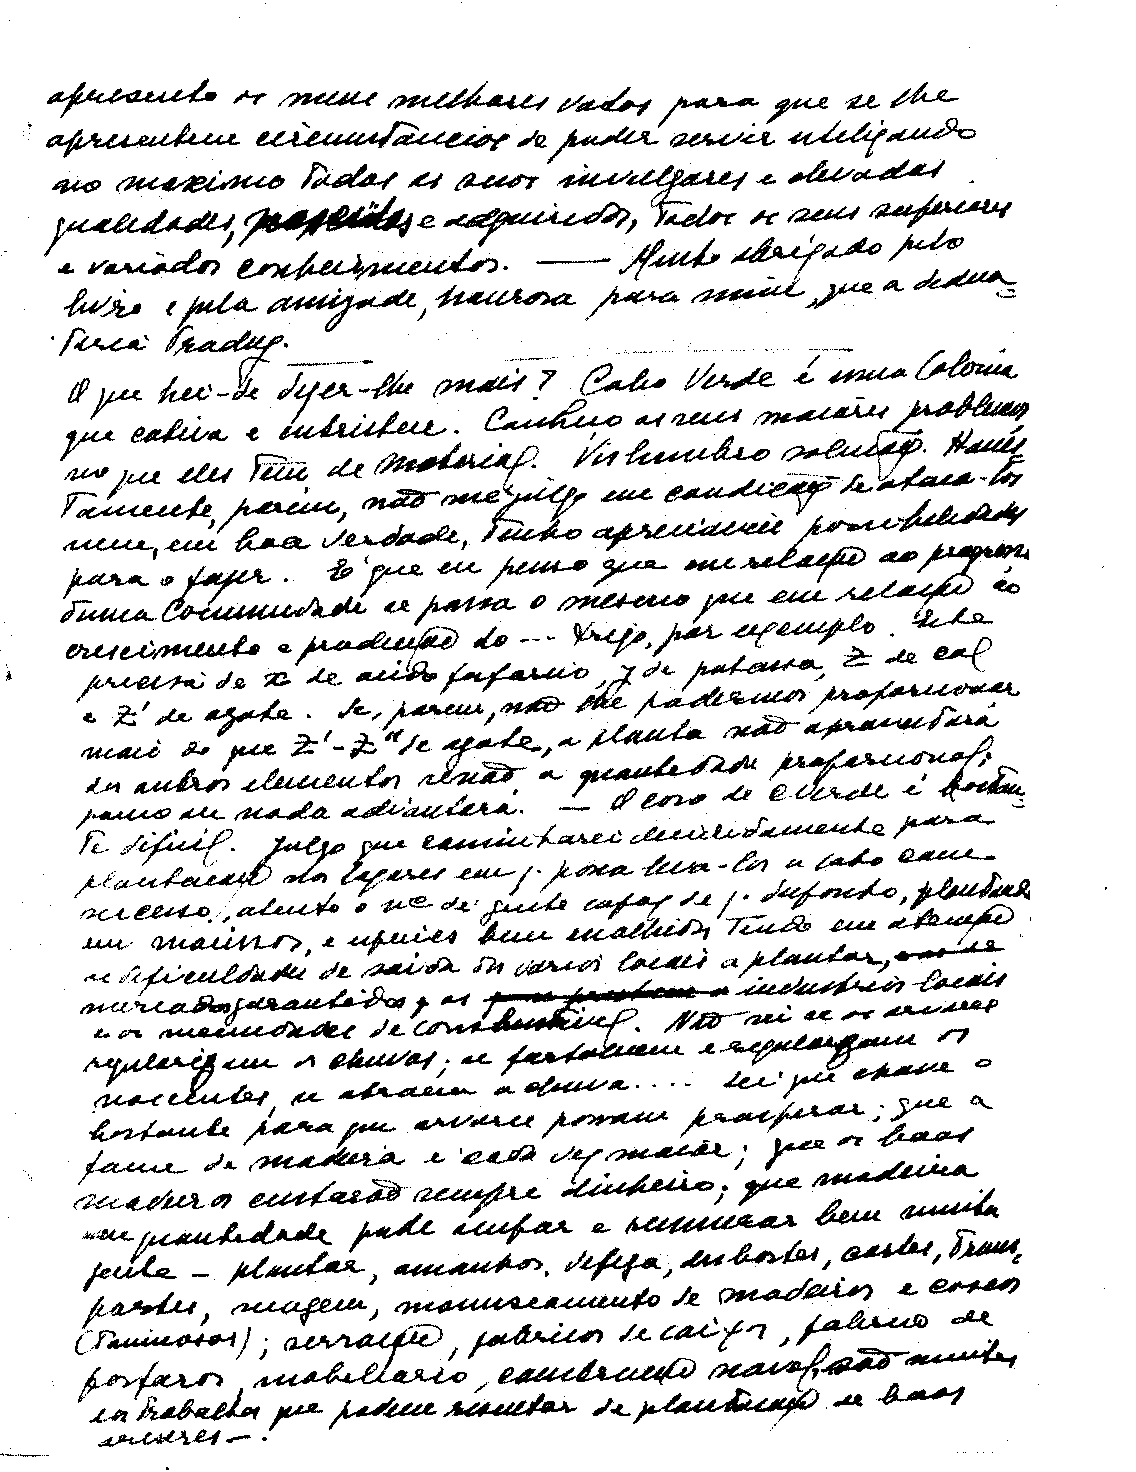 apresento os meus melhores votos para que se lhe
apresentem circunstancias de poder servir utilizando
ao maximo todas as suas invulgares e elevadas
qualidades, e adquiridas, todos os seus superiores
e variados conhecimentos. — Muito obrigado pelo
livro e pela amizade, honrosa para mim, que a dedica-
toria traduz.
O que hei-de dizer-lhe mais? Cabo Verde é uma Colonia
que cativa e entristece. Conheço os seus maiores problemas
no que eles teem de material. Vislumbro solução. Hones-
tamente, porém, não me julgo em condições de ataca-los
nem, em boa verdade, tenho apreciaveis possibilidades
para o fazer. É que eu penso que em relação ao progresso
duma Comunidade se passa o mesmo que em relação ao
crescimento e produção do --- trigo, por exemplo. Este
precisa de x de acido fosforico, y de potassa, Z de cal
e Z' de agote. Se, porem, não lhe podermos proporcionar
mais do que Z'-Z" de agote, a planta não aproveitará
dos outros elementos senão a quantidade proporcional;
pouco ou nada adiantará. — O caso de C. Verde é bastan-
te dificil. Julgo que caminharei decididamente para
plantação nos lugares em q. possa leva-los a cabo com
sucesso, atento o nº de gente capaz de q. disponho, plantando
em macissos, e especies bem escolhidas tendo em atenção
a dificuldade de saida dos varios locais a plantar,
mercados garantidos, as industrias locais
e as necessidades de combustivel. Não sei se as arvores
regularizam as chuvas; se fortalecem e regularizam as
nascentes, se atraem a chuva.... Sei que chove o
bastante para que arvores possam prosperar; que a
fome de madeira é cada vez maior; que as boas
madeiras custarão sempre dinheiro; que madeira
em quantidade pode ocupar e remunerar bem muita
gente — plantar, amanhos, defeza, desbastes, cortes, trans-
portes, seragem, manuseamento de madeiras e cascas
(taninosas); serração, fabricos de caixas, fabrico de
fosforos, mobiliario, construção naval, são muitos
os trabalhos que podem resultar de plantação de boas
arvores —.